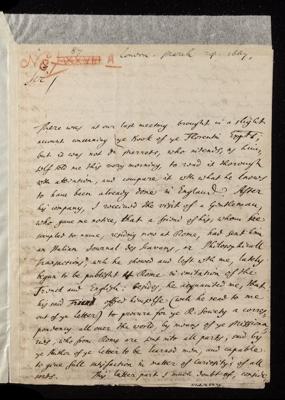 87
London. March 24. 1667.
A
Sir,
There was at our last meeting brought in a slight
account concerning ye Book of ye Florentin
but it was not Dr who intends, as him
self told me this very morning, to read it thorough
with attention, and compare it with what he knows
to have been already done in England. After
his company, I received the visit of a Gentleman,
who gave me notice, that a friend of his, whom he
to name, residing now at Rome, had sent him
an Italian Journal des Sçavans, or Philosophicall
Transactions, wch he shewed and left with me, lately
begun to be publisht at Rome in imitation of the
French and English: Besides, he acquainted me, that
his said Friend offred himselfe (wch he read to me
out of ye letter) to procure for ye R. Society a corres-
pondency all over the world, by means of ye Missiona-
ries, who from Rome are sent into all parts, said by
ye Author of ye letter to be learned men, and capable
to give full satisfaction in matter of curiosity's of all
sorts. This latter part I made doubt of,